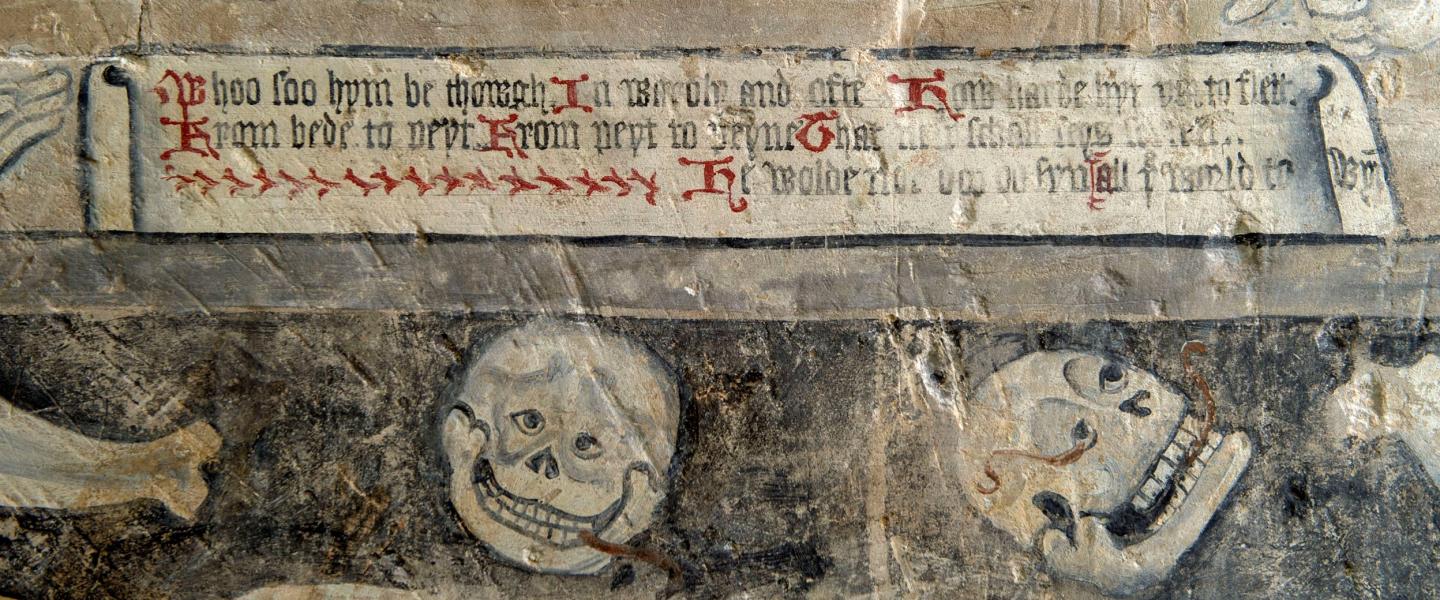 Whoo soo hym be thowght In wardly and ofte How harde hyt ys to flett
From bede to peyt From peyt to peyne That schall
He wolde not do syn all þe world to wyn